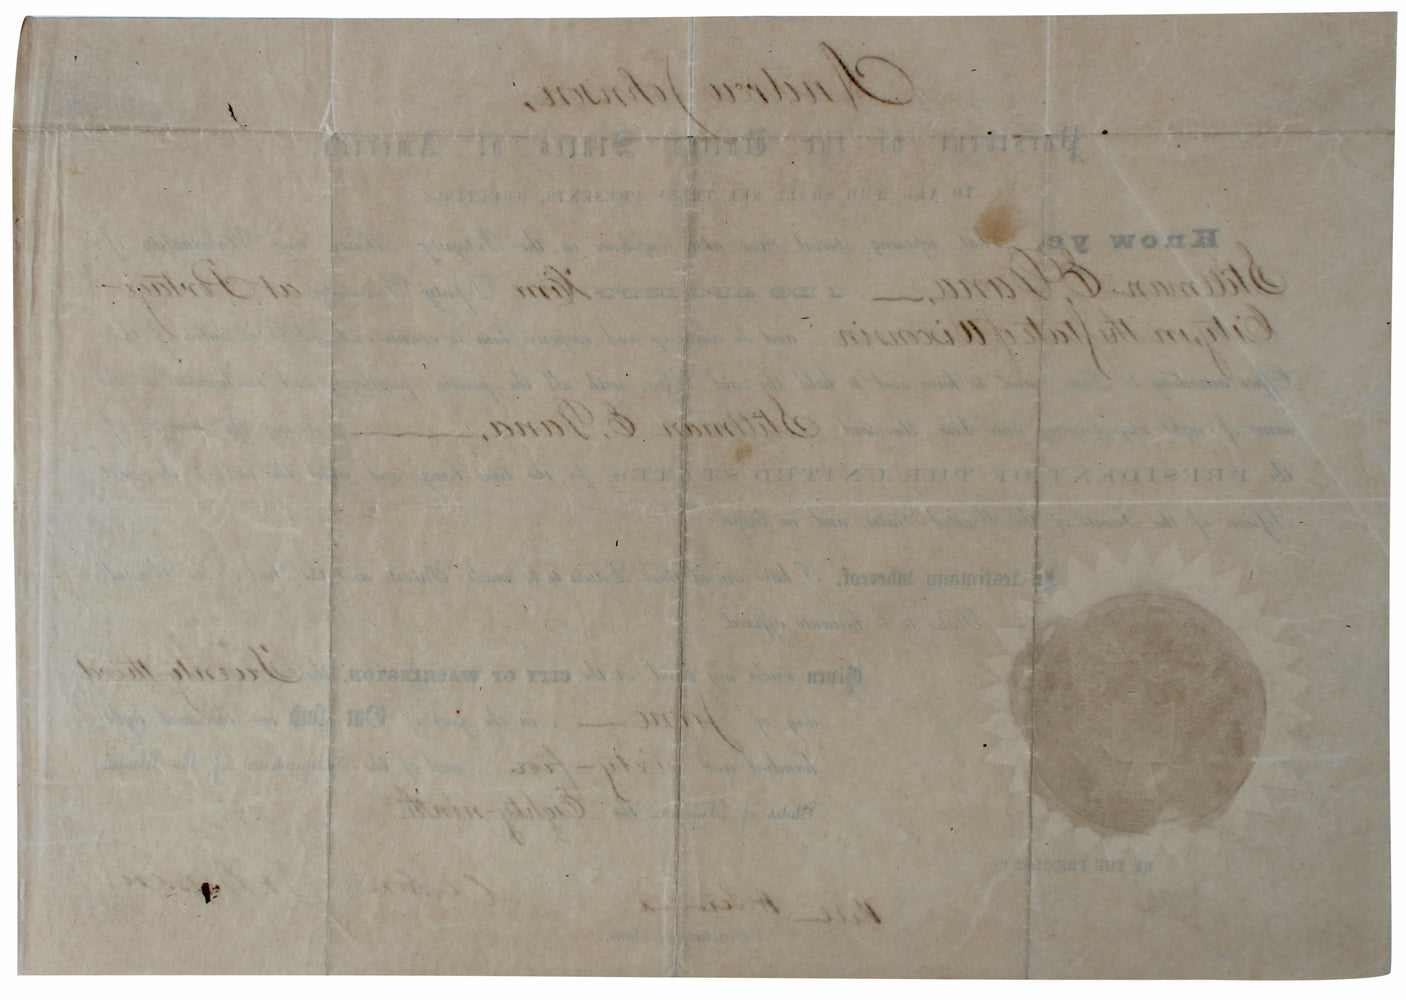 Andrew Johnson,
President of the United States of America,
TO ALL WHO SHALL SEE THESE PRESENTS, GREETING:
Know ye, That reposing special trust and confidence in the Integrity Ability and Punctuality of
Stillman E. Dana, I DO APPOINT him Deputy Postmaster at Portage
City, in the State of Wisconsin and do authorize and empower him to execute and fulfil the duties of that
Office according to Law; and to have and to hold the said Office, with all the powers, privileges and emoluments to the
same of right appertaining unto him, the said Stillman E. Dana, during the pleasure of
the PRESIDENT OF THE UNITED STATES for the time being, and until the end of the next
Session of the Senate of the United States, and no longer.
In testimony whereof, I have caused these Letters to be made Patent and the Seal of the United
States to be hereunto affixed.
Given under my hand at the CITY OF WASHINGTON, the Twenty third
day of June in the year of Our Lord one thousand eight
hundred and sixty-five and of the Independence of the United
States of America the Eighty-ninth.
BY THE PRESIDENT